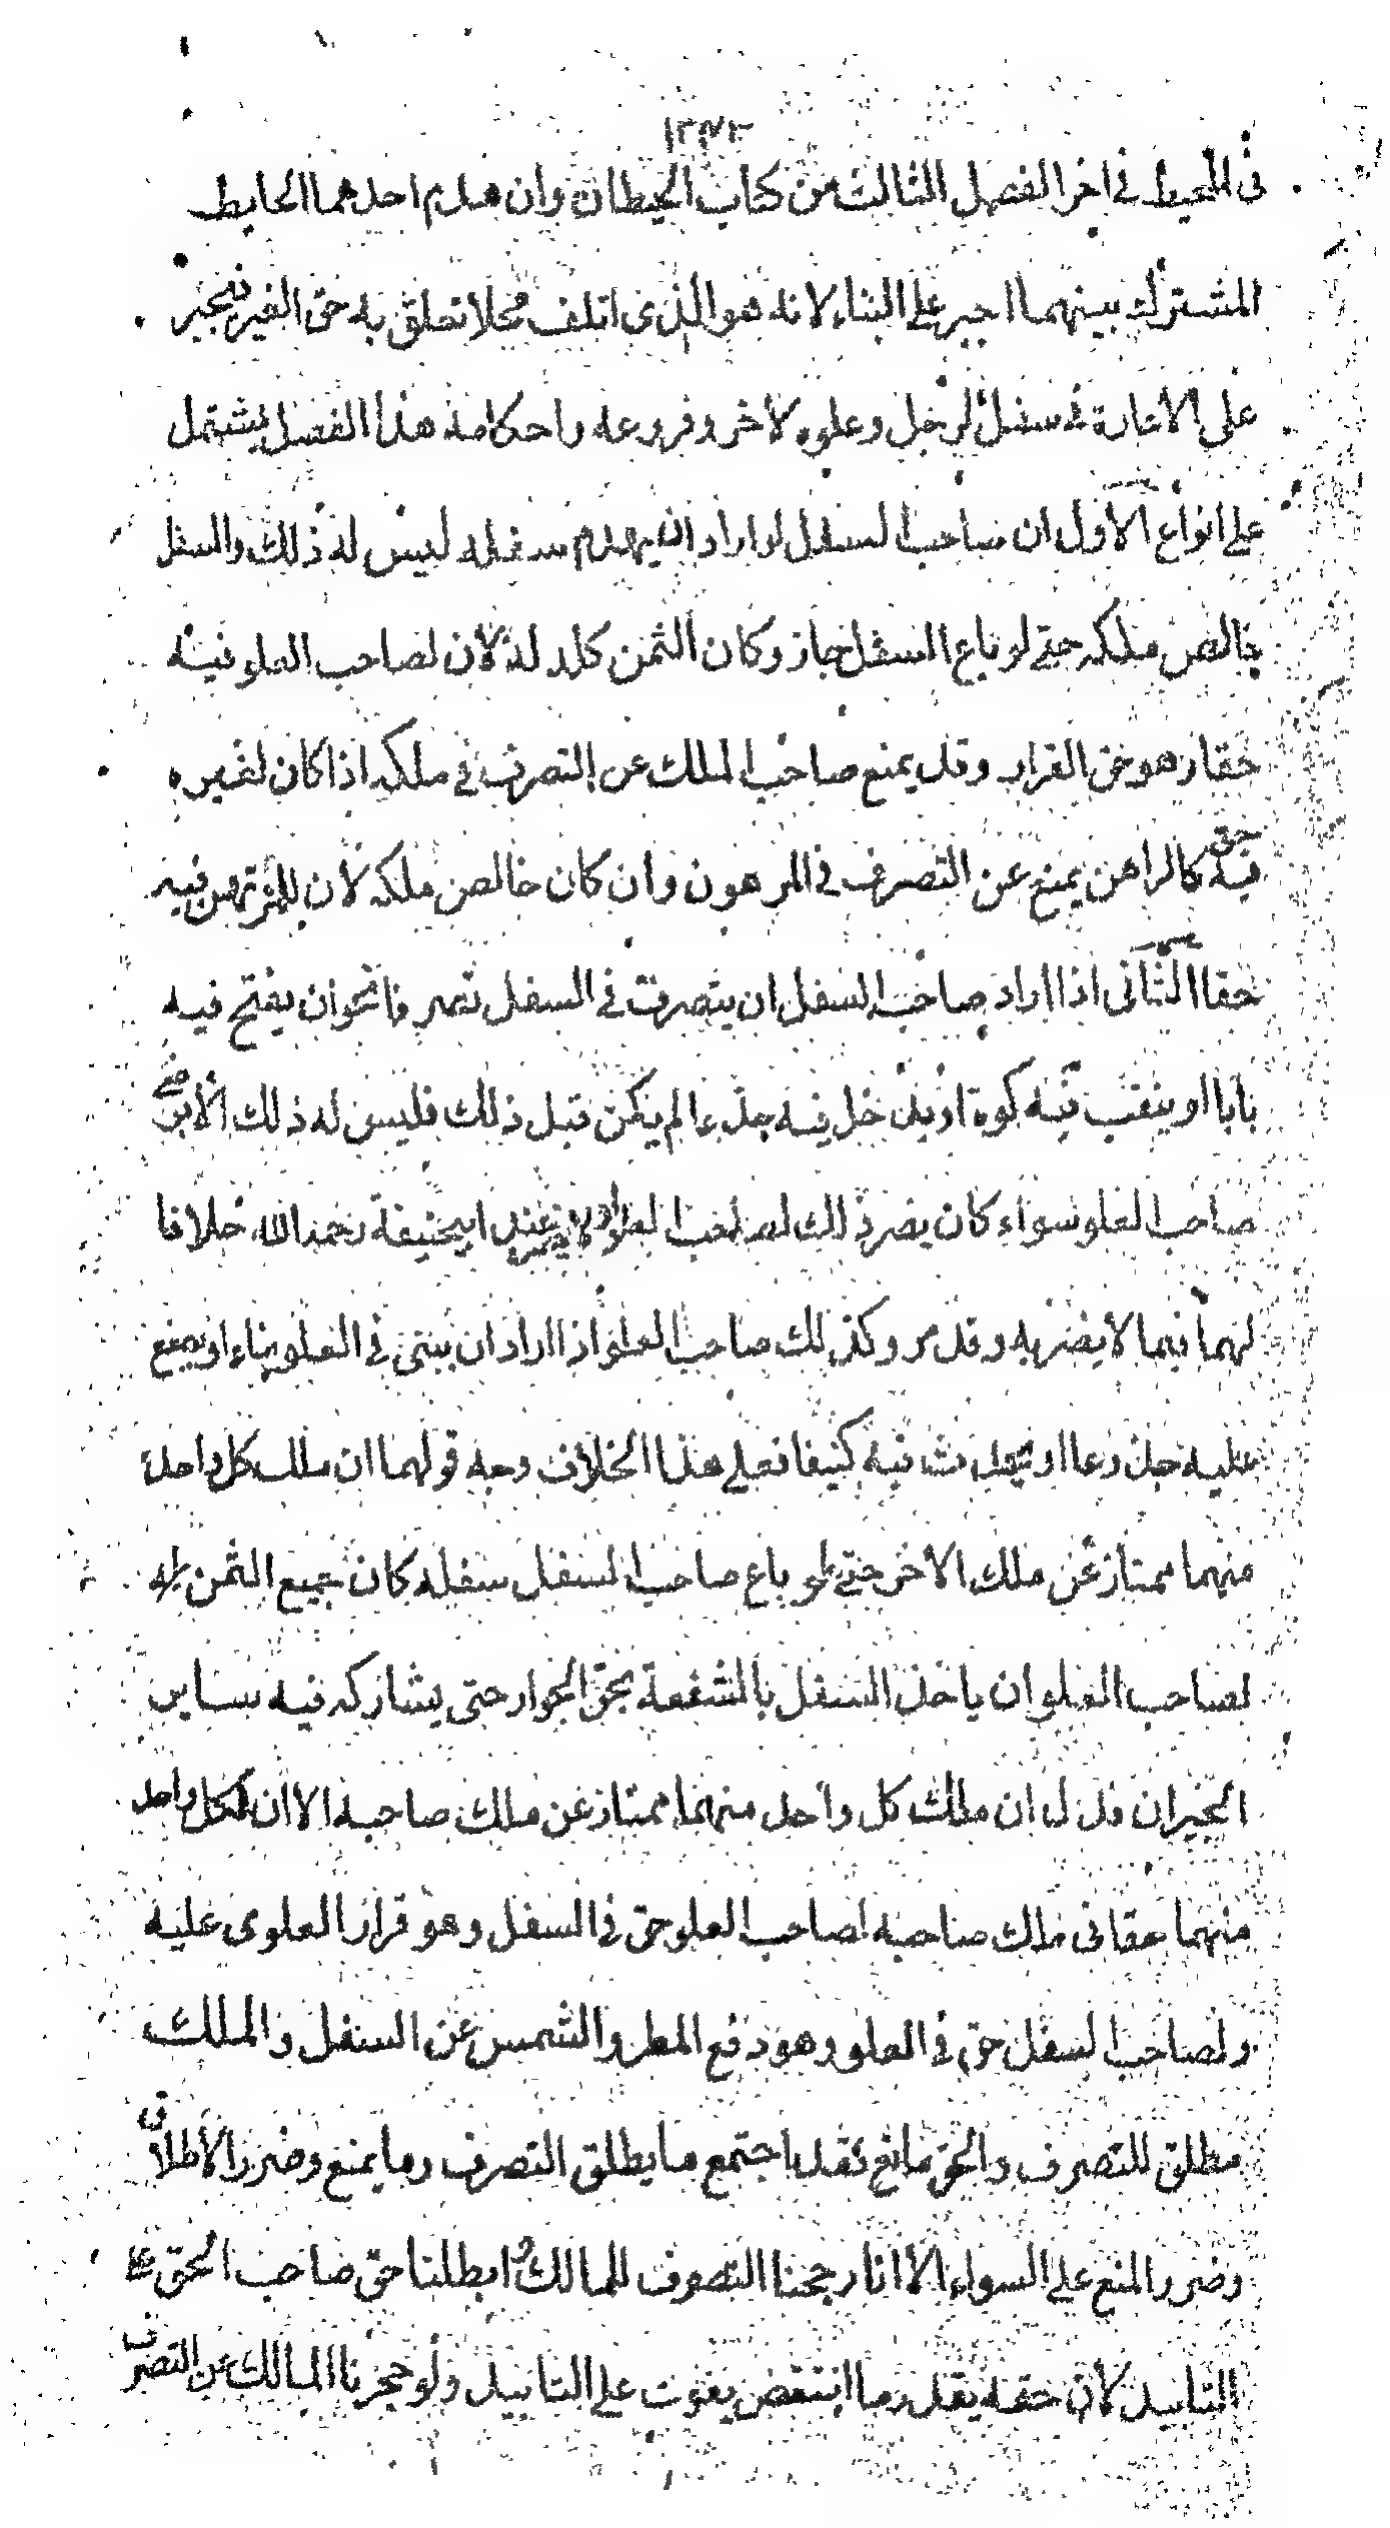 ١٣٧٣
في المحيط في اخر الفصل الثالث من كتاب الحيطان وان هدم احدهما الحايط
المشترك بينهما اجبر على البناء لانه هو الذي اتلف محلا تعلق به حق الغير فيجبر
على الاعادة في سفل لرجل وعلوه لاخر وفروعه واحكامه هذا الفصل يشتمل
على انواع الاول ان صاحب السفل لو اراد ان يهدم سفله ليس له ذلك والسفل
خالص ملكه حتى لو باع السفل جاز وكان الثمن كله له لان لصاحب العلو فيه
حقا وهو حق القرار وقد يمنع صاحب الملك عن التصرف في ملكه اذا كان لغيره
فيه حق كالراهن يمنع عن التصرف في المرهون وان كان خالص ملكه لان للمرتهن فيه
حقا الثاني اذا اراد صاحب السفل ان يتصرف في السفل تصرفا نحو ان يفتح فيه
بابا او ينقب فيه كوة او يدخل فيه جذعا لم يكن قبل ذلك فليس له ذلك الا برضى
صاحب العلو سواء كان يضر ذلك لصاحب العلو او لا يضر عند ابي حنيفة رحمه الله خلافا
لهما فيما لا يضر به وقد مر وكذلك صاحب العلو اذا اراد ان يبني في العلو بناء او يضع
عليه جذوعا او يحدث فيه كنيفا فعلى هذا الخلاف وجه قولهما ان ملك كل واحد
منهما ممتاز عن ملك الاخر حتى لو باع صاحب السفل سفله كان جميع الثمن له
لصاحب العلو ان ياخذ السفل بالشفعة بحق الجوار حتى يشاركه فيه ساير
الجيران فدل ان ملك كل واحد منهما ممتاز عن ملك صاحبه الا ان لكل واحد
منهما حقا في ملك صاحبه لصاحب العلو حق في السفل وهو قرار العلوى عليه
ولصاحب السفل حق في العلو وهو دفع المطر والشمس عن السفل والملك
مطلق للتصرف والحق مانع فقد اجتمع ما يطلق التصرف وما يمنع وضرر الاطلاق
وضرر المنع على السواء الا انا رجحنا التصرف للمالك وابطلنا حق صاحب الحق على
التابيد لان حقه يعد وما انتقض يفوت على التابيد ولو حجرنا المالك عن التصرف